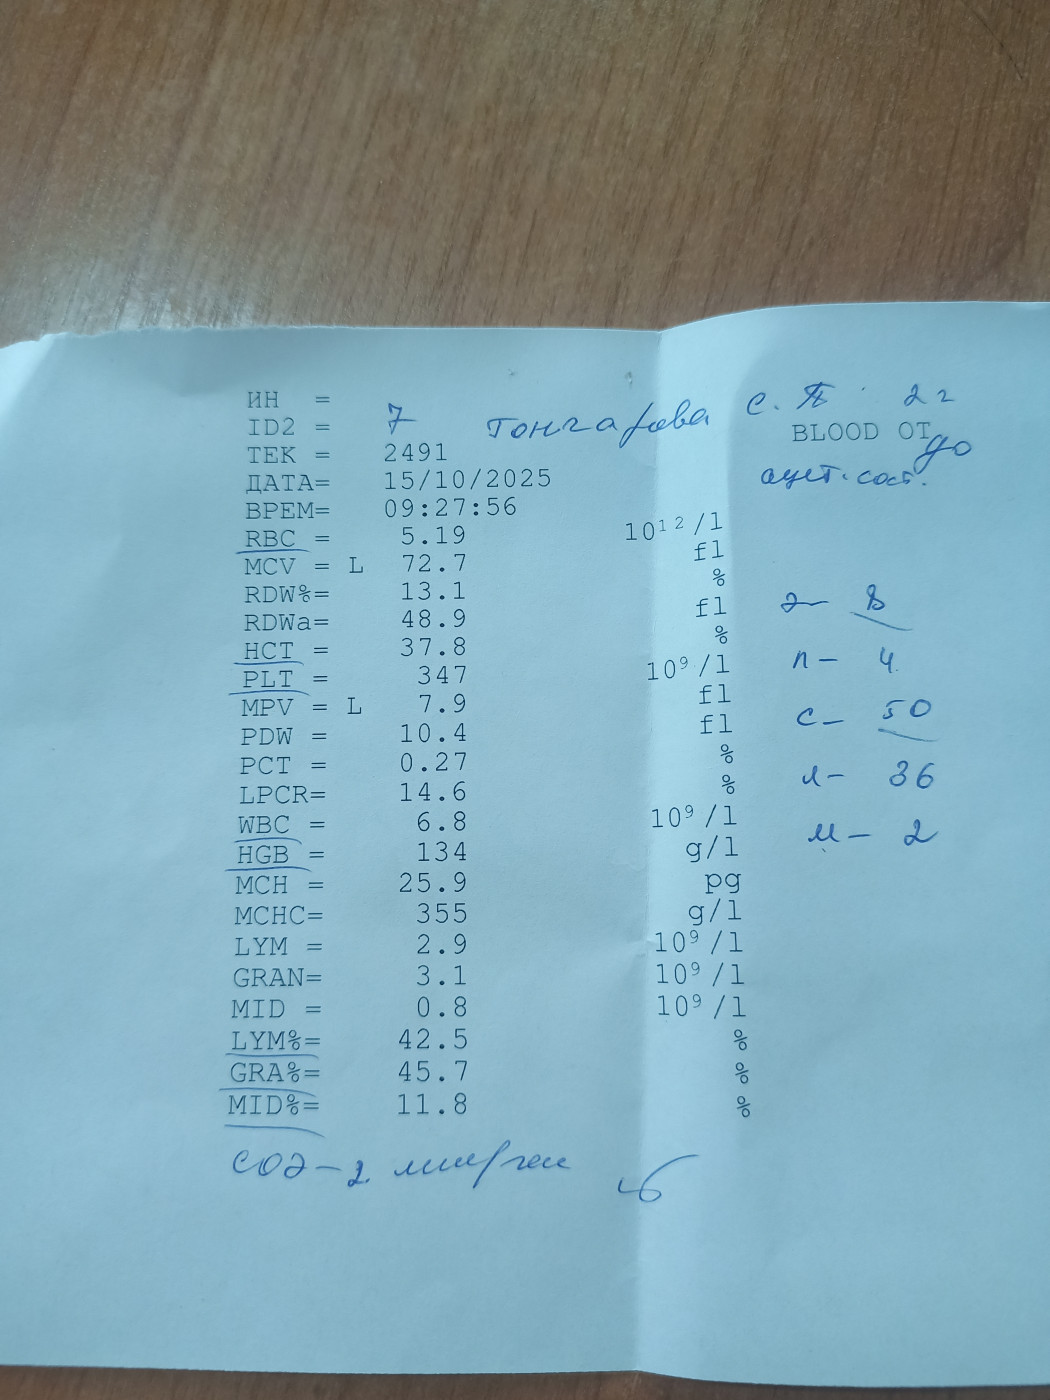 ИН =
ID2 = 7 С. 2 г
ТЕК = 2491 BLOOD ОТ до
ДАТА= 15/10/2025
ВРЕМ= 09:27:56
RBC = 5.19 10¹²/l
MCV = L 72.7 fl
RDW%= 13.1 %
RDWa= 48.9 fl э - 8
HCT = 37.8 %
PLT = 347 10⁹/l п - 4
MPV = L 7.9 fl
PDW = 10.4 fl с - 50
PCT = 0.27 %
LPCR= 14.6 % л - 36
WBC = 6.8 10⁹/l
HGB = 134 g/l м - 2
MCH = 25.9 pg
MCHC= 355 g/l
LYM = 2.9 10⁹/l
GRAN= 3.1 10⁹/l
MID = 0.8 10⁹/l
LYM%= 42.5 %
GRA%= 45.7 %
MID%= 11.8 %
СОЭ - 2 мм/час